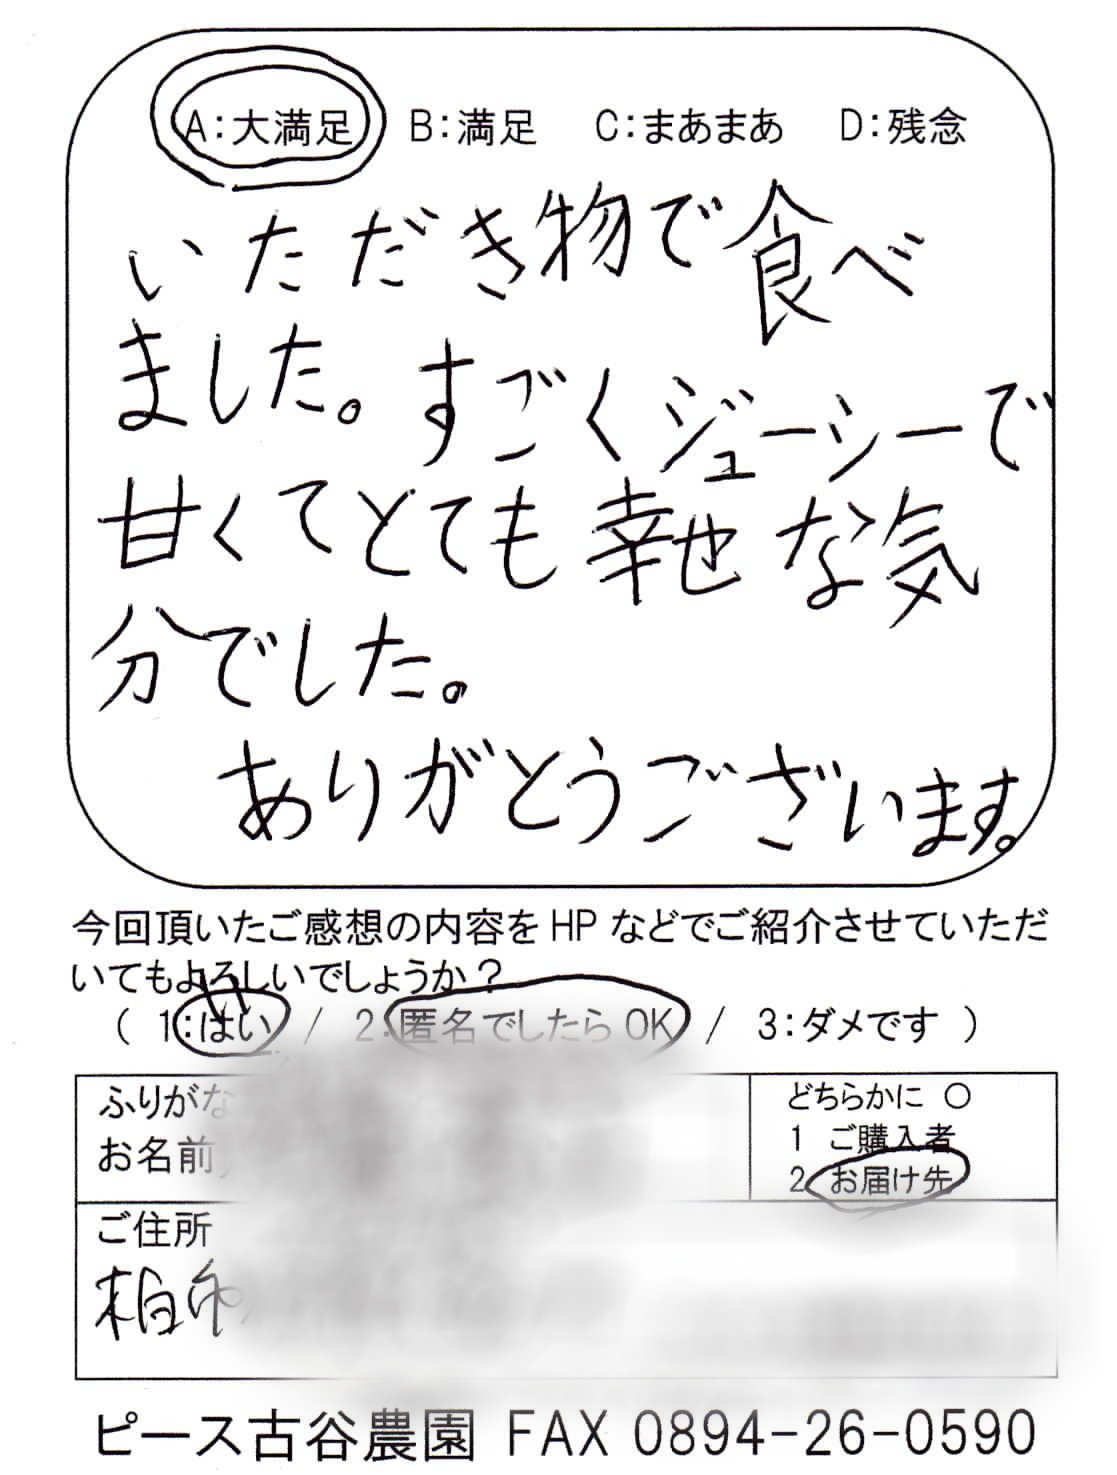 A：大満足 B：満足 C：まあまあ D：残念
いただき物で食べ
ました。すごくジューシーで
甘くてとても幸せな気
分でした。
ありがとうございます。
今回頂いたご感想の内容をHPなどでご紹介させていただ
いてもよろしいでしょうか？
（ 1：はい / 2：匿名でしたらOK / 3：ダメです ）
ふりがな
お名前
どちらかに 〇
1 ご購入者
2 お届け先
ご住所
柏市
ピース古谷農園 FAX 0894-26-0590